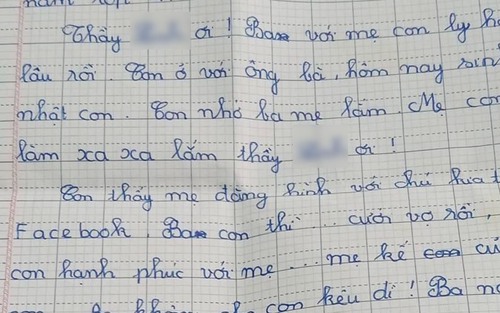 Thầy ơi ! Ba với mẹ con ly
lâu rồi. Con ở với ông bà, hôm nay sinh
nhật con. Con nhớ ba mẹ lắm. Mẹ con
làm xa xa lắm thầy ơi !
Con thấy mẹ đăng hình với chú kia
Facebook. Ba con thì ... cưới vợ rồi,
con hạnh phúc với mẹ ... mẹ kế
con kêu dì ! Ba